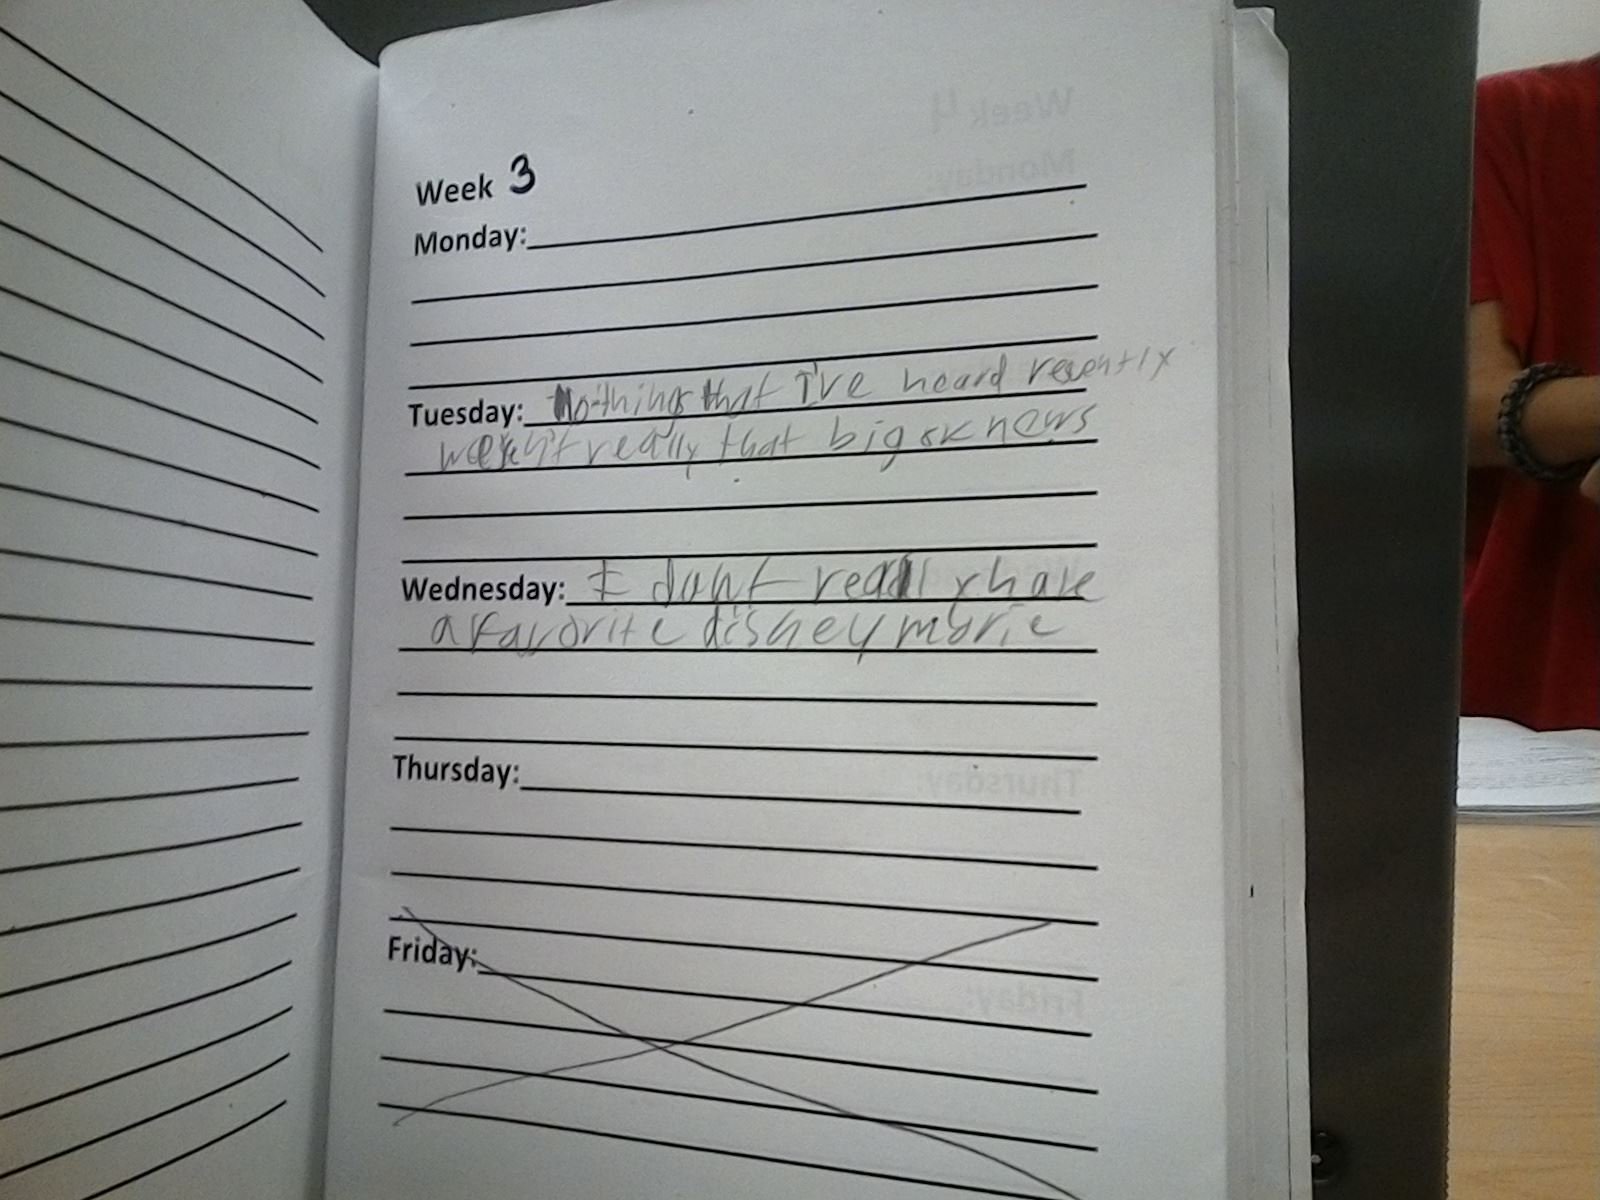 Week 4
Monday:
Week 3
Monday:
Tuesday: Nothing that I've heard resently
weren't really that big news
Wednesday: I dont really have
a favorite disney movie
Thursday:
Thursday:
Friday:
Friday: